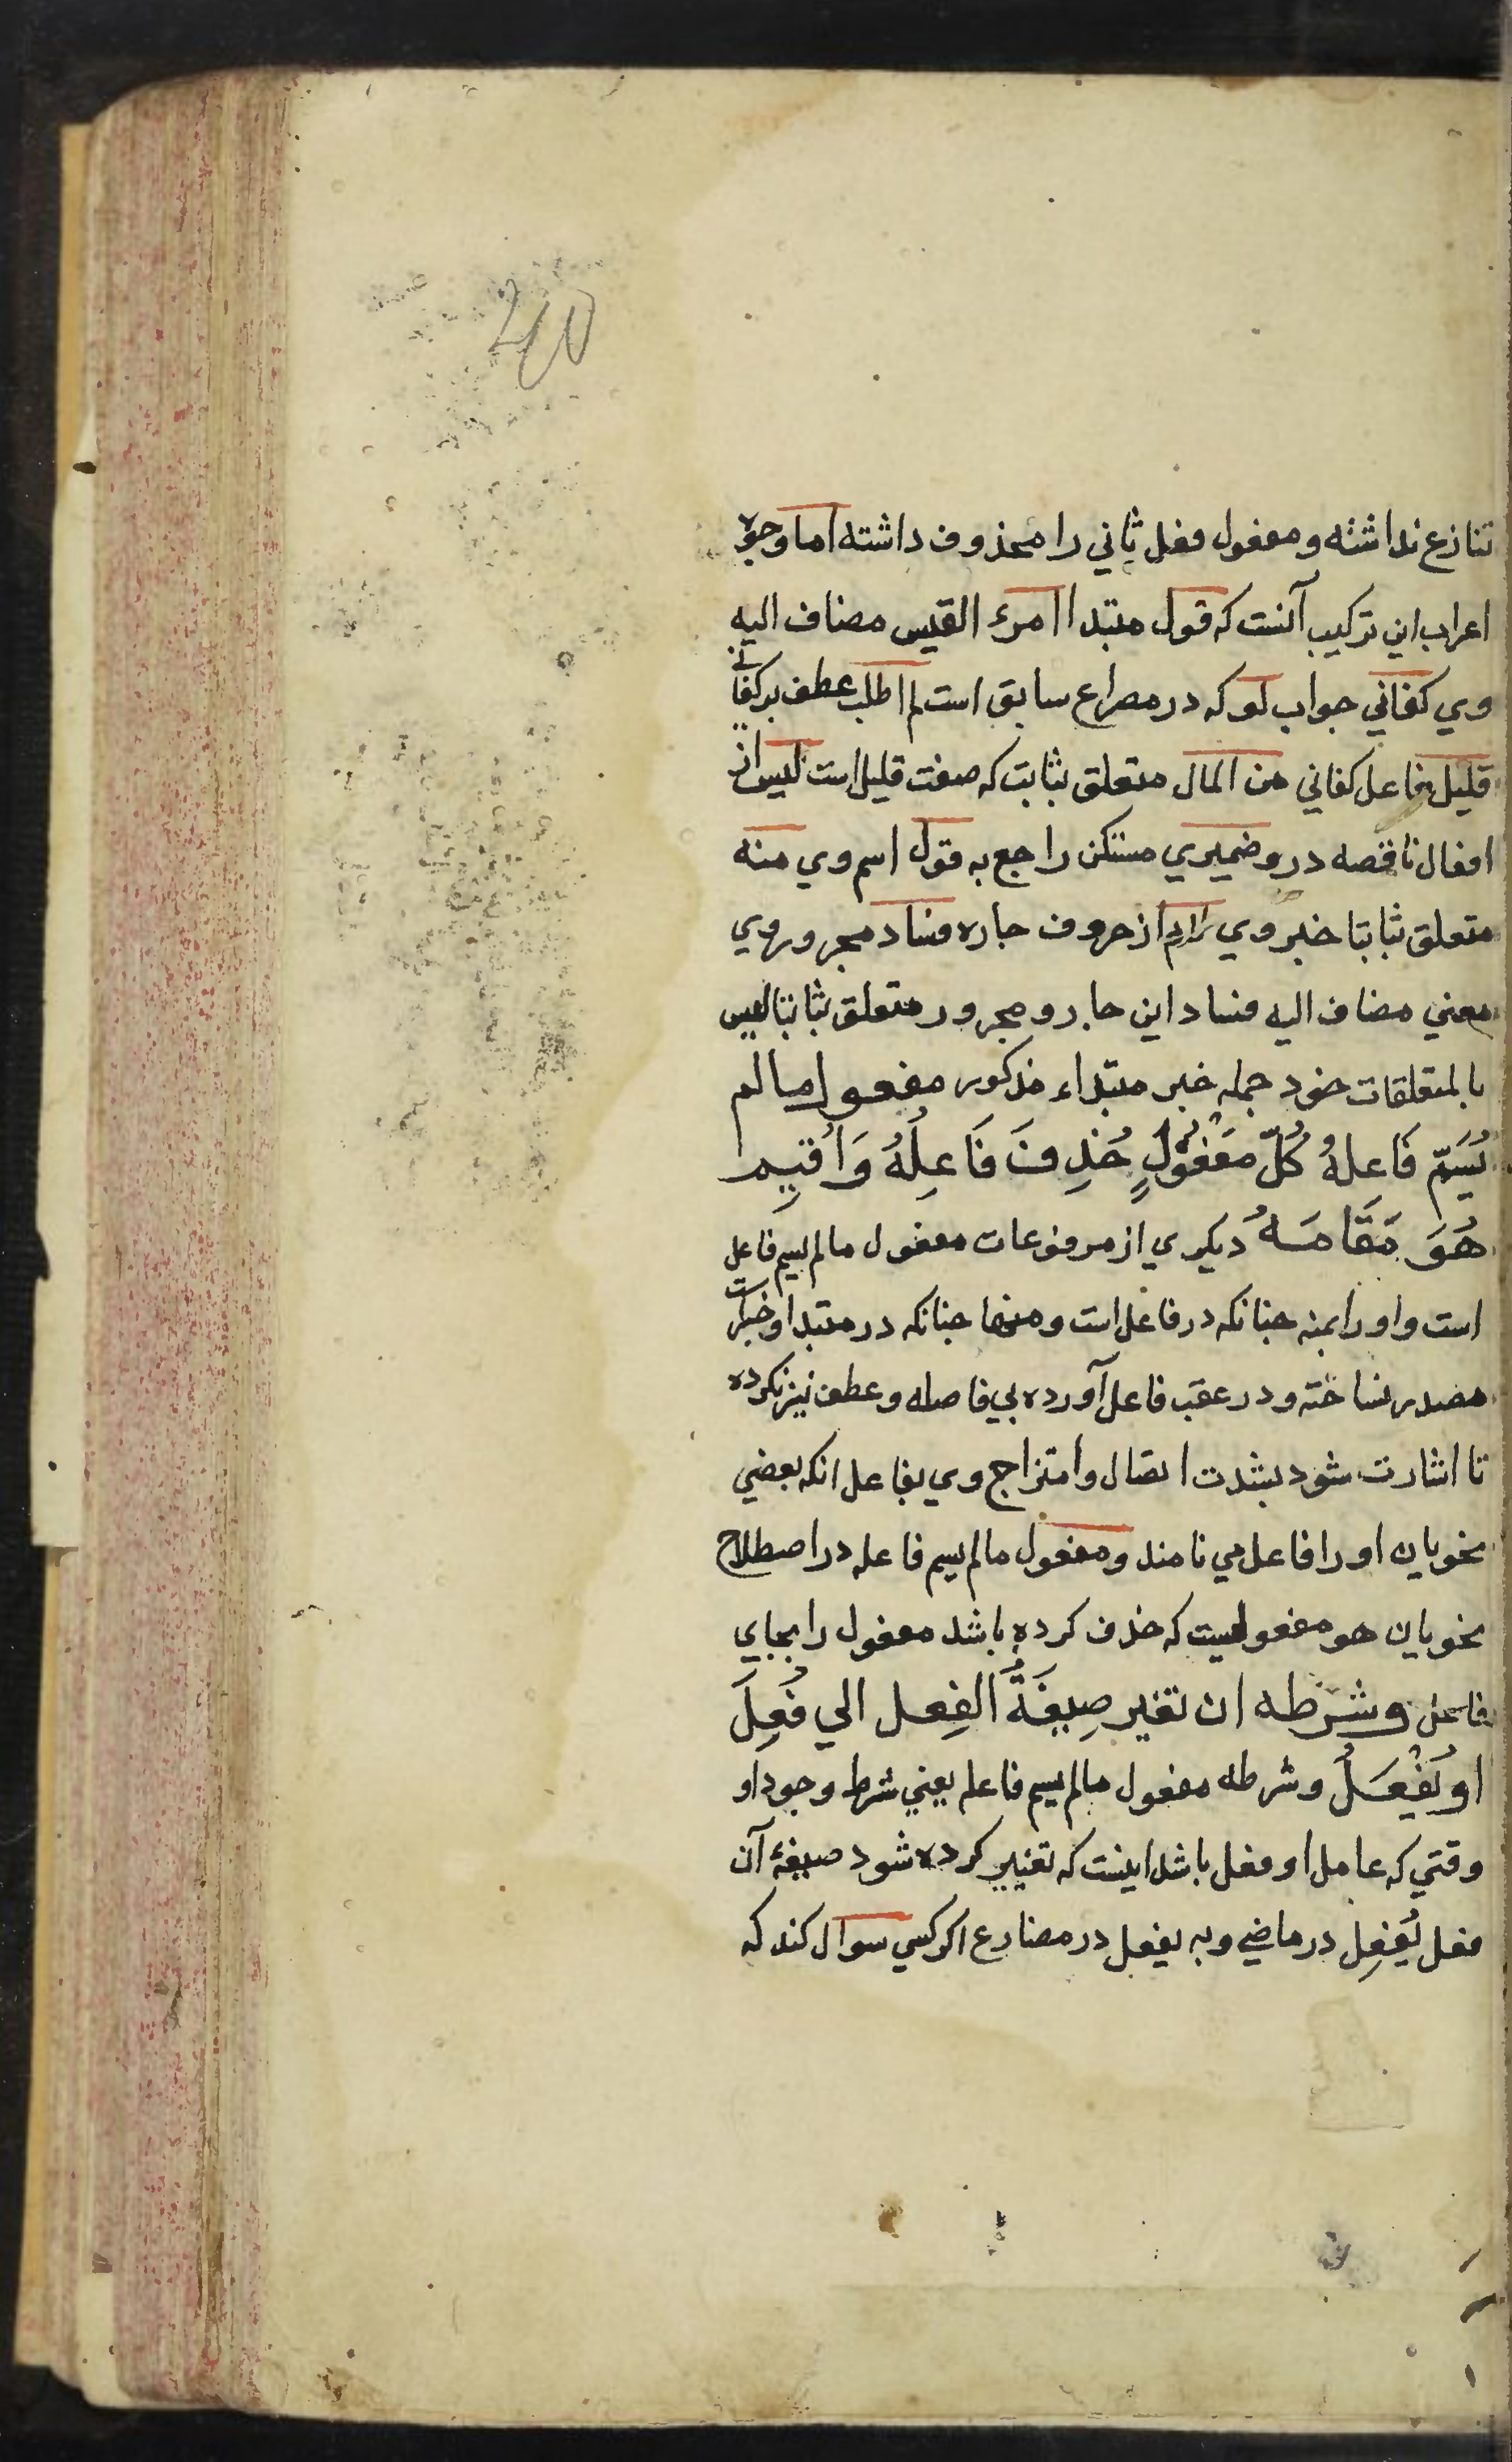 40
تنازع نداشته ومفعول فعل ثاني را محذوف داشته اما وجوه
اعراب اين تركيب آنست كه قول مبتدا امرء القيس مضاف اليه
وي كفاني جواب لو كه در مصراع سابق است لم اطلب عطف بر كفاني
قليل فاعل كفاني من المال متعلق بثابت كه صفت قليل است ليس از
افعال ناقصه درو ضميري مستكن راجع به قول اسم وي منه
متعلق بثابتا خبر وي از حروف جاره فساد مجرور وي
معني مضاف اليه فساد اين جار و مجرور متعلق بثابتا ليس
با متعلقات خود جمله خبر مبتداء مذكور مفعول ما لم
يُسَمَّ فَاعلهُ كُلّ مَفْعُولٍ حُذِفَ فَاعِلُهُ وَاُقِيم
هُوَ مَقَامَهُ ديكري از مرفوعات مفعول مالم يسم فاعل
است و او را بمنه چنانكه در فاعل است ومنها چنانكه در مبتدا و خبر است
مصدر نساخته و در عقب فاعل آورده بي فاصله وعطف نيز نكرده
تا اشارت شود بشدت اتصال وامتزاج وي بفاعل انكه بعضي
نحويان او را فاعل مي نامند ومفعول مالم يسم فاعله در اصطلاح
نحويان هو مفعوليست كه حذف كرده باشد مفعول را بجاي
فاعل وشرطه ان تغير صِيغَةُ الفِعل الي فُعِلَ
او يُفْعَلُ وشرطه مفعول مالم يسم فاعله يعني شرط وجود او
وقتي كه عامل او فعل باشد اينست كه تغيير كرده شود صيغۀ آن
فعل بفُعِل در ماضي وبه يفعل در مضارع اكر كسي سوال كند كه